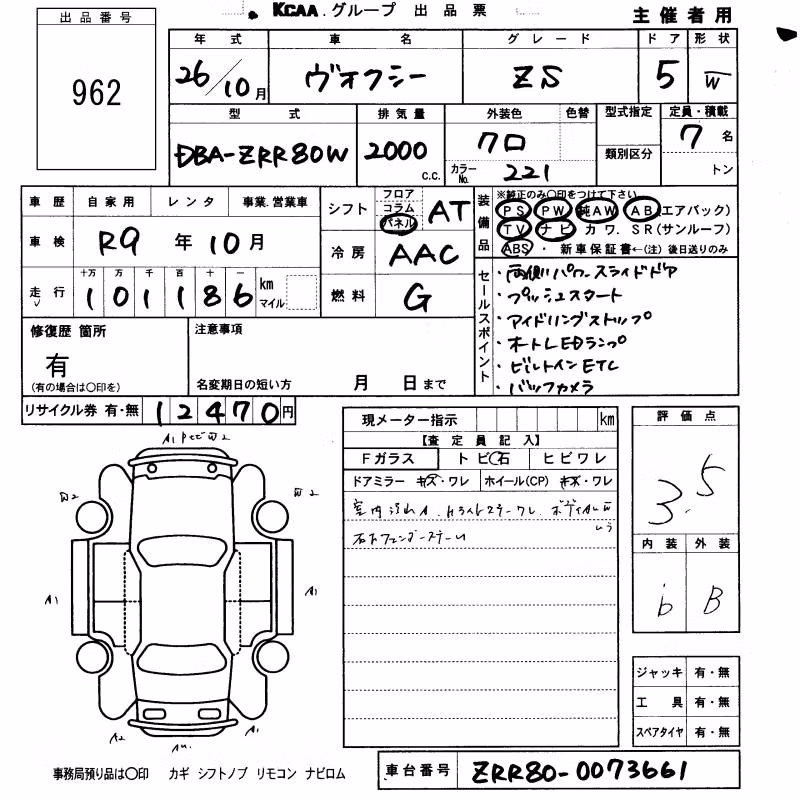 KCAA.グループ 出品票
主催者用
出品番号
962
年 式 車 名 グ レ ー ド ドア 形状
26/10月 ヴォクシー ZS 5 W
型 式 排気量 外装色 色替 型式指定 定員・積載
DBA-ZRR80W 2000 c.c. クロ 類別区分 7 名
カラーNo. 221 トン
車歴 自家用 レンタ 事業.営業車
車検 R9 年 10 月
走行 十万 万 千 百 十 一 km マイル
1 0 1 1 8 6
シフト フロア コラム パネル AT
冷房 AAC
燃料 G
装備品 ※純正のみ〇印をつけて下さい
PS PW 純AW AB(エアバック)
TV ナビ カワ. SR(サンルーフ)
ABS・新車保証書←(注)後日送りのみ
セールスポイント
・両側パワースライドドア
・プッシュスタート
・アイドリングストップ
・オートLEDランプ
・ビルトインETC
・バックカメラ
修復歴 箇所
有
(有の場合は〇印を)
注意事項
名変期日の短い方 月 日まで
リサイクル券 有・無 12470円
現メーター指示 km
【査定員記入】
Fガラス トビ石 ヒビワレ
ドアミラー キズ・ワレ ホイール(CP) キズ・ワレ
評価点
3.5
内装 外装
b B
A1
A1
A2
A1
ジャッキ 有・無
工 具 有・無
スペアタイヤ 有・無
事務局預り品は〇印 カギ シフトノブ リモコン ナビロム
車台番号 ZRR80-0073661